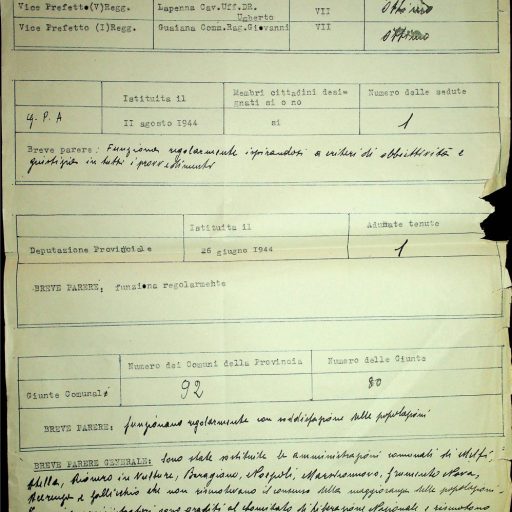 Vice Prefetto(V)Regg. Lapenna Cav.Uff.DR. Ugherto VII Ottimo
Vice Prefetto (I)Regg. Guaiana Comm.Rag.Giovanni VII Ottimo
Istituita il Membri cittadini desi-
gnati si o no Numero delle sedute
G. P. A II agosto 1944 si 1
Breve parere: Funziona regolarmente ispirandosi a criteri di obbiettività e
giustizia in tutti i provvedimenti
Istituita il Adunate tenute
Deputazione Provinciale 26 giugno 1944 1
BREVE PARERE; funziona regolarmente
Numero dei Comuni della Provincia Numero delle Giunte
Giunte Comunali 92 80
BREVE PARERE: funzionano regolarmente con soddisfazione delle popolazioni
BREVE PARERE GENERALE: Sono state sostituite le amministrazioni comunali di Melfi,
Atella, Rionero in Vulture, Baragiano, Noepoli, Marsiconuovo, Grumento Nova,
Acerenza e Gallicchio che non riscuotevano il consenso della maggioranza delle popolazioni.
sono graditi al Comitato di Liberazione Nazionale e riscuotono